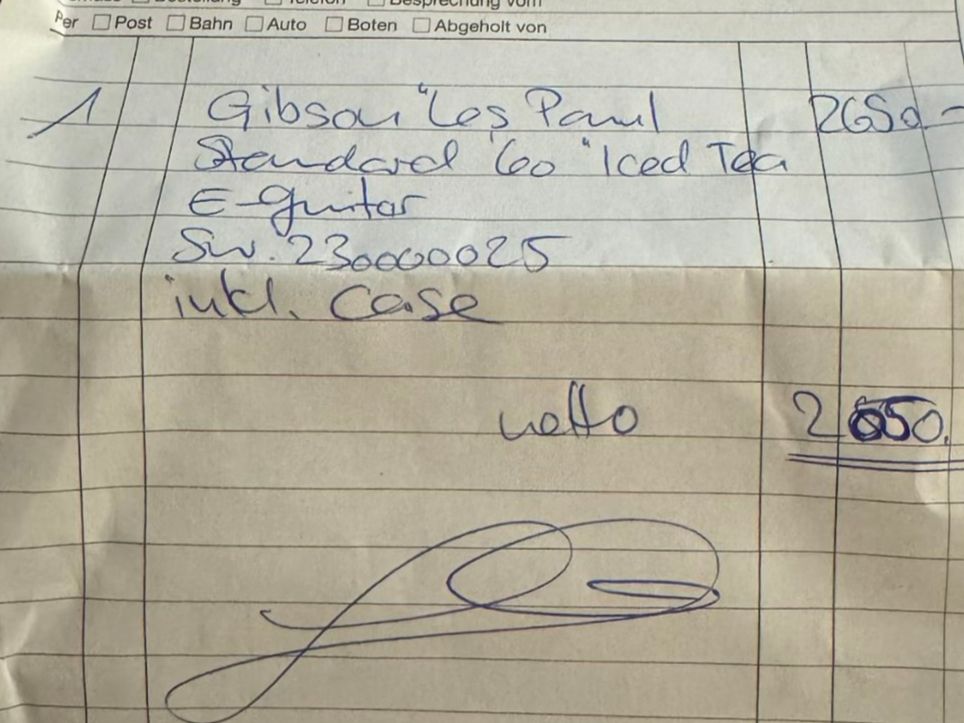 Bestellung Telefon Besprechung vom
Per Post Bahn Auto Boten Abgeholt von
1 Gibson "Les Paul 2650.-
Standard '60" Iced Tea
E-Guitar
SN. 230000025
inkl. Case
netto 2650.